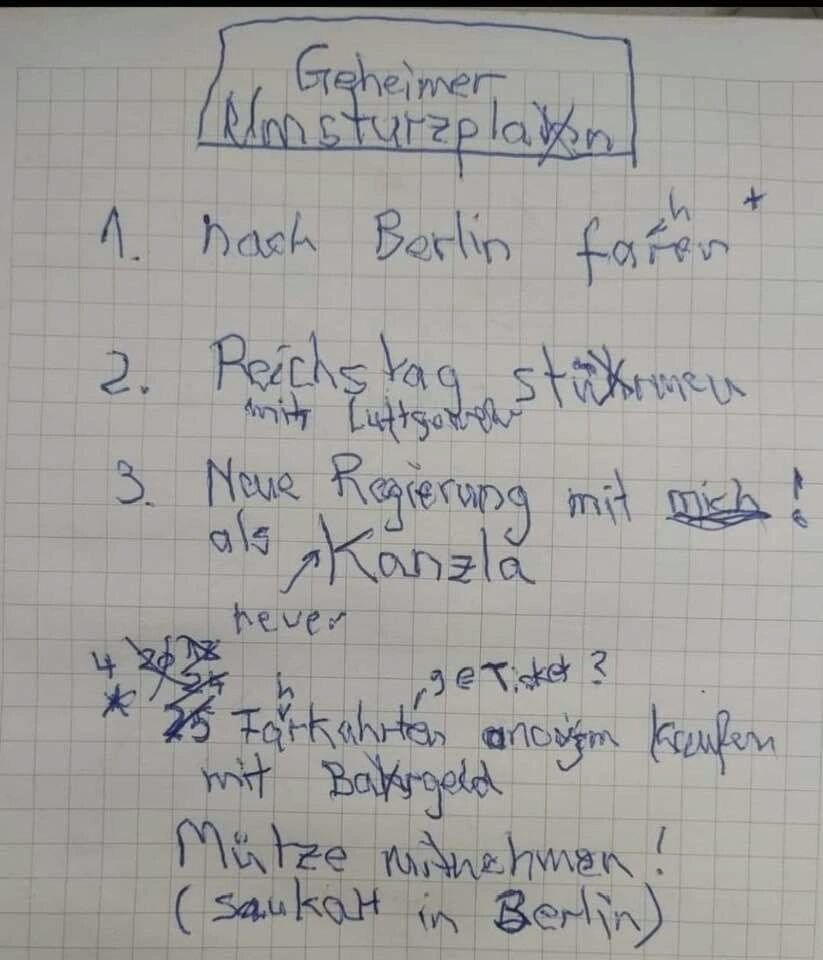 Geheimer
Umsturzplan
1. nach Berlin fahren *
2. Reichstag stürmen
mit Luftgewehr
3. Neue Regierung mit mich!
als Kanzla
neuer
4 20 12
* 24 , 9€ Ticket?
25 Fahrkahrten anonym kaufen
mit Bargeld
Mütze mitnehmen!
(saukalt in Berlin)